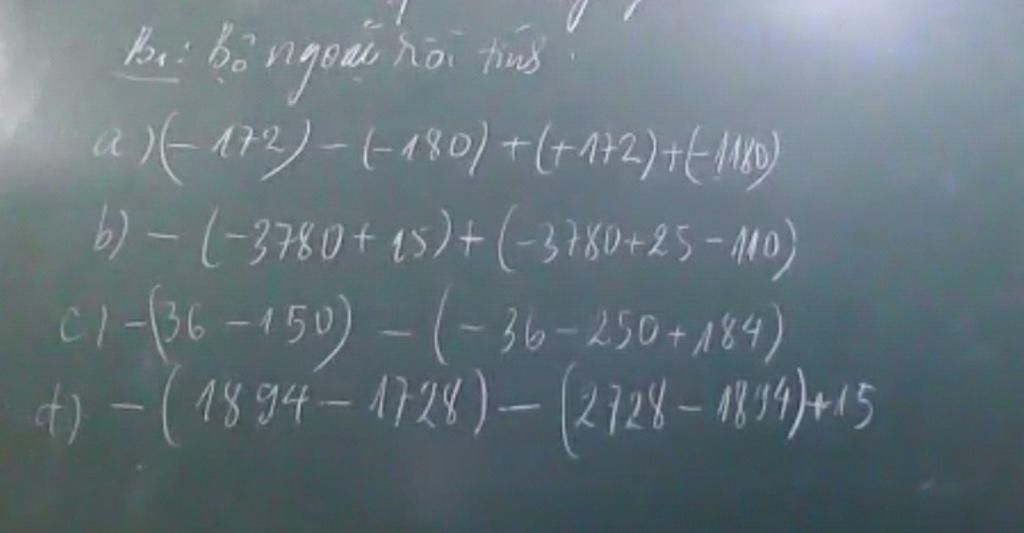 B1: Bỏ ngoặc rồi tính
a) (-172) - (-180) + (+172) + (-1180)
b) - (-3780 + 15) + (-3780 + 25 - 110)
c) - (36 - 150) - (-36 - 250 + 184)
d) - (1894 - 1728) - (2728 - 1894) + 15